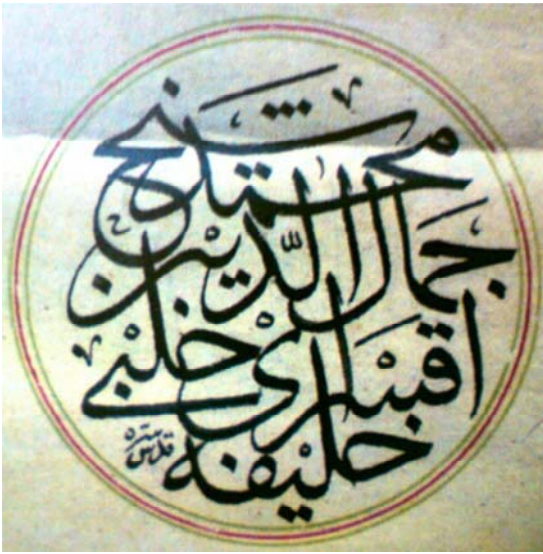 شيخ محمد
جمال الدين
اقسرايى چلبى
خليفه
قدس سره